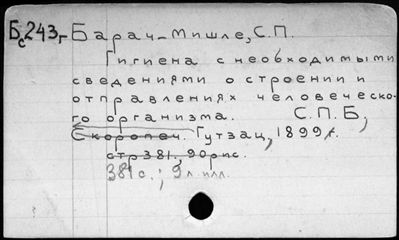 Бс243г Барач-Мишле, С.П.
Гигиена с необходимыми
сведениями о строении и
отправлениях человеческо-
го организма. С.П.Б,
Скоропеч. Гутзац, 1899 г.
стр 381., 90 рис.
381 с.; 9 л. илл.